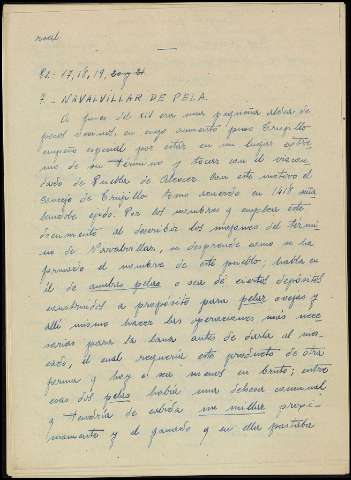 82 - 17, 18, 19,
7. - NAVALVILLAR DE PELA.
A fines del XIV era una pequeña aldea de
en cuyo aumento puso Trujillo
empeño especial por estar en un lugar extre-
mo de su término y tocar con el vizcon-
dado de Puebla de Alcocer. Con este motivo el
concejo de Trujillo tomó acuerdo en 1418 seña-
landole ejido. Por los nombres que emplea este
documento al describir los mojones del térmi-
no de Navalvillar, se desprende como se ha
formado el nombre de este pueblo: habla en
él de ambas pelas o sea de ciertos depósitos
construidos a propósito para pelar ovejas y
allí mismo hacer las operaciones más nece-
sarias para la lana antes de darla al mer-
cado, el cual requería este producto de otra
forma que hoy o sea menos en bruto; entre
esas dos pelas había una dehesa comunal
y tendría de cabida un millar propia-
mente y el ganado que en ella pastaba